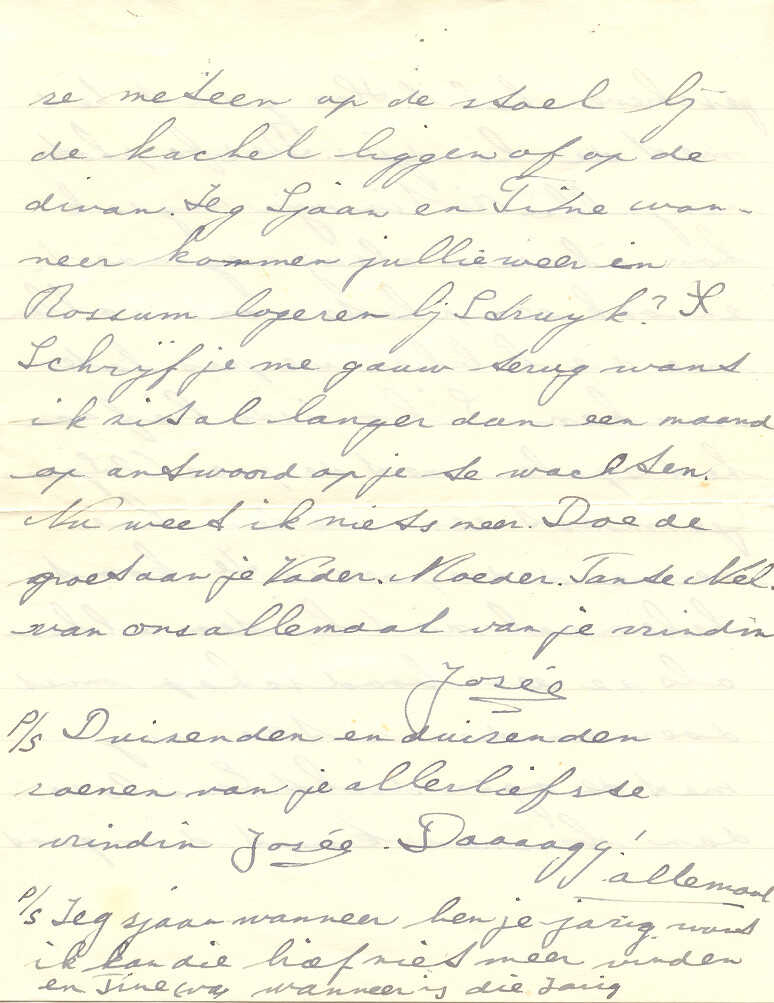 ze meteen op de stoel bij
de kachel liggen of op de
divan. Zeg Sjaan en Tine wan-
neer kommen jullie weer in
Rossum logeren bij Struyk?
Schrijf je me gauw terug want
ik zit al langer dan een maand
op antwoord op je te wachten.
Nu weet ik niets meer. Doe de
groet aan je Vader. Moeder. Tante Nel.
van ons allemaal van je vrindin
Josée
P/S Duizenden en duizenden
zoenen van je allerliefste
vrindin Josée. Daaaagg!
allemaal
P/S Zeg sjaan wanneer ben je jarig want
ik kan die brief niet meer vinden
en Tine wanneer is die Jarig